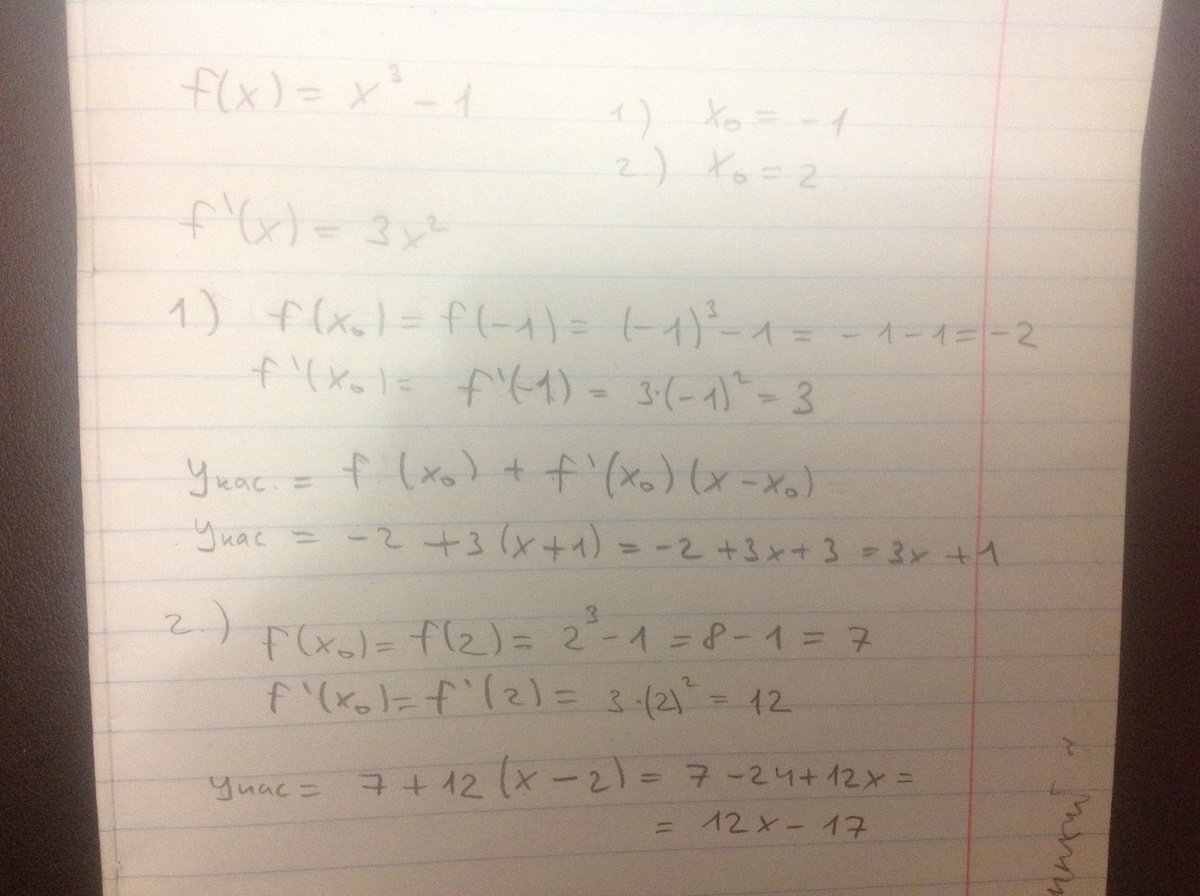 f(x) = x³ - 1
1.) x₀ = -1
2.) x₀ = 2
f'(x) = 3x²
1.) f(x₀) = f(-1) = (-1)³ - 1 = -1 - 1 = -2
f'(x₀) = f'(-1) = 3·(-1)² = 3
Yкас. = f(x₀) + f'(x₀)(x - x₀)
Yкас = -2 + 3(x+1) = -2 + 3x + 3 = 3x + 1
2.) f(x₀) = f(2) = 2³ - 1 = 8 - 1 = 7
f'(x₀) = f'(2) = 3·(2)² = 12
Yкас = 7 + 12(x - 2) = 7 - 24 + 12x =
= 12x - 17